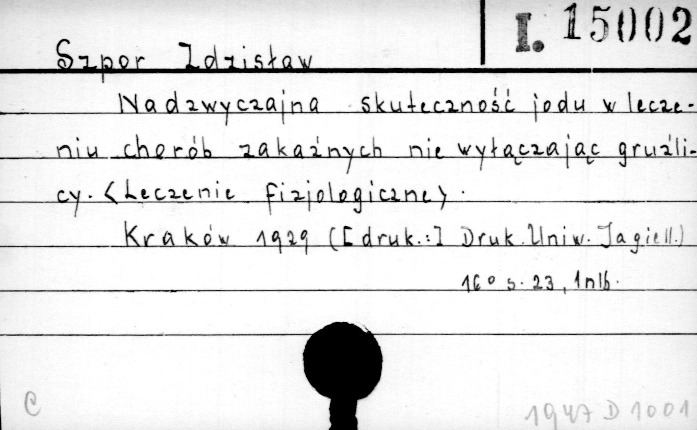 I. 15002
Szpor Zdzisław
Nadzwyczajna skuteczność jodu w lecze-
niu chorób zakaźnych nie wyłączając gruźli-
cy. <Leczenie fizjologiczne>.
Kraków 1929 ([druk.:] Druk. Uniw. Jagiell.)
16° s. 23, 1 nlb.
C
1947 D 1001